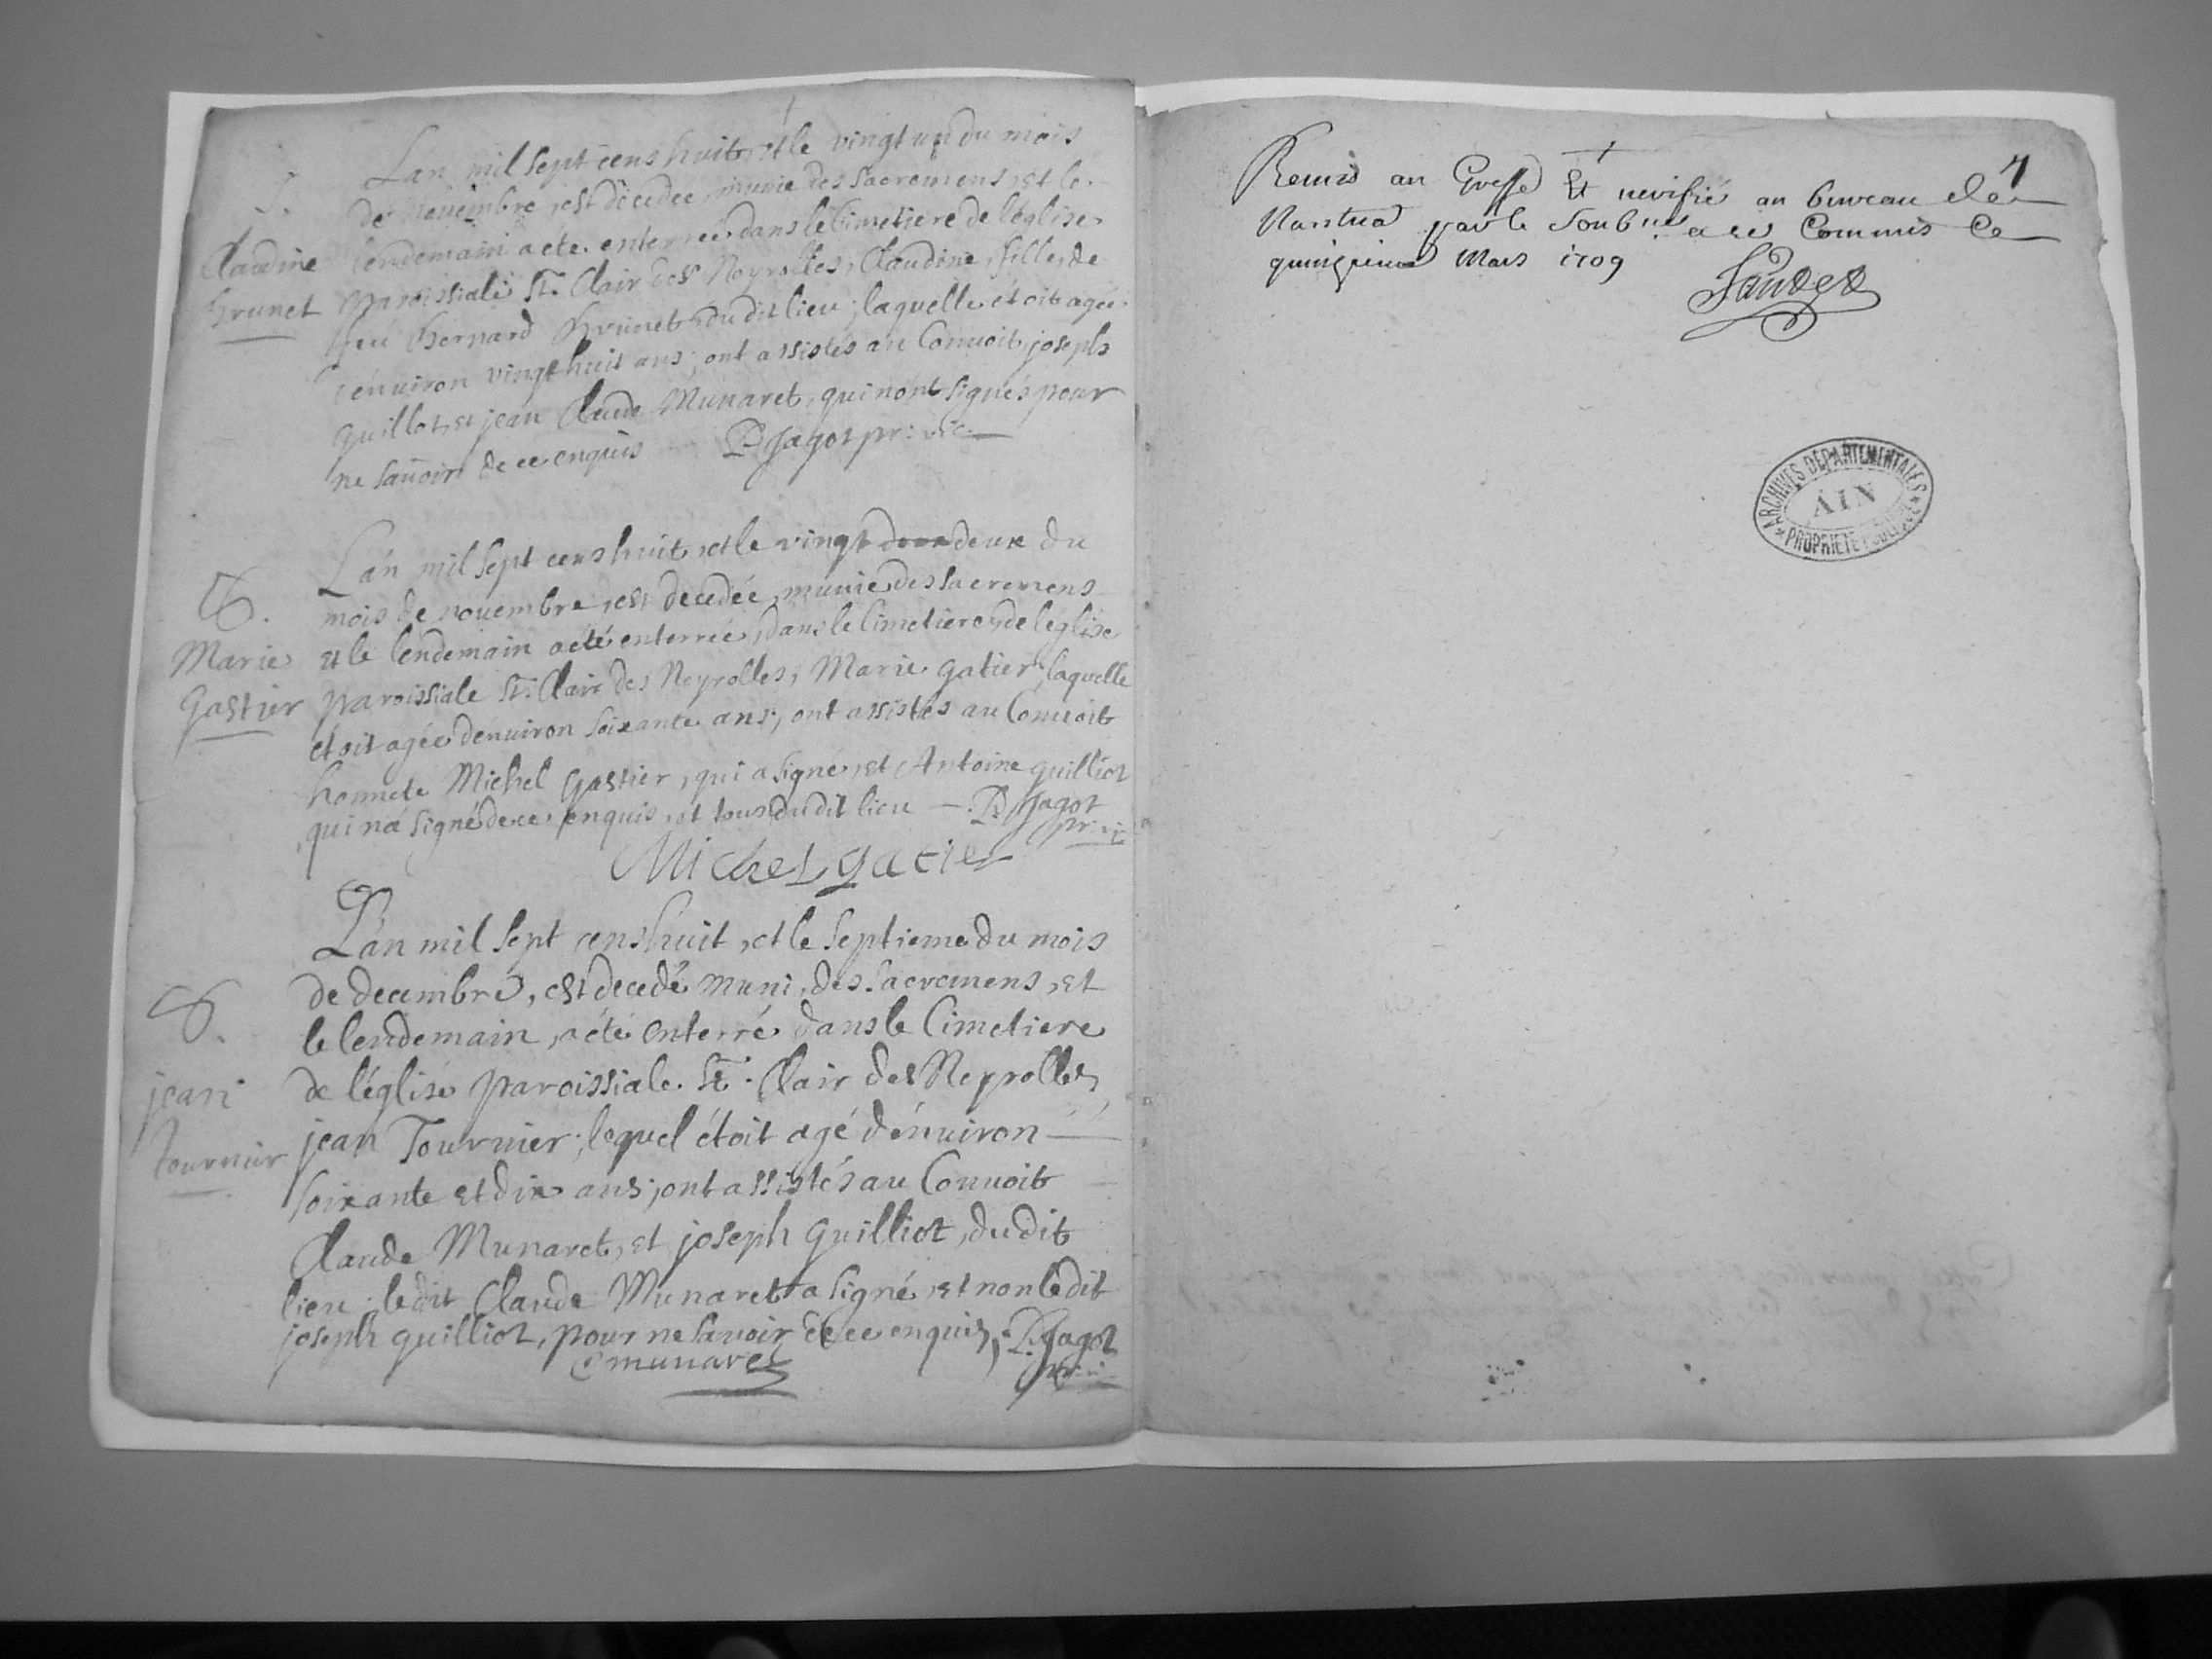 Lan mil sept cens huit, et le vingt un du mois
de novembre, est décedée, munie des sacremens, et le
lendemain a eté enterrée dans le Cimetiere de l'église
paroissiale St. Clair des Neyrolles, Claudine, fille, de
feu bernard brunet, du dit lieu; laquelle étoit agée
d'énuiron vingt huit ans; ont assistés au Conuoit, joseph
guillot, et jean Claude Munaret, qui n'ont signés pour
ne sauoir de ce enquis P. Jagot pr: vic.
S.
Claudine
brunet
L'an mil sept cens huit, et le vingt deux du
mois de nouembre, est decedée, munie des sacremens
et le lendemain a eté enterrée, dans le Cimetiere, de l'église
paroissiale St. Clair des Neyrolles, Marie gatier; laquelle
etoit agée d'énuiron soixante ans; ont assistés au Conuoit
honnete Michel Gastier, qui a signé, et Antoine guilliot
qui n'a signé de ce enquis, et tous du dit lieu P. Jagot
pr: vic
Michel gatier
Marie
Gastier
L'an mil sept cens huit, et le septieme du mois
de decembre, est decedé muni, des sacremens, et
le lendemain, a été enterré dans le Cimetiere
de l'église paroissiale St. Clair des Neyrolles,
jean Tournier; lequel étoit agé d'énuiron
soixante et dix ans; ont assistés au Conuoit
Claude Munaret, et joseph guilliot, du dit
lieu; le dit Claude Munaret a signé, et non le dit
joseph guilliot, pour ne sauoir de ce enquis, P. Jagot
pr:
C munaret
jean
tournier
4
Remis au Greffe Et verifié au bureau de
Nantua par le Soub.né a ce Commis Ce
quinzieme Mars 1709
ARCHIVES DÉPARTEMENTALES
AIN
PROPRIÉTÉ PUBLIQUE